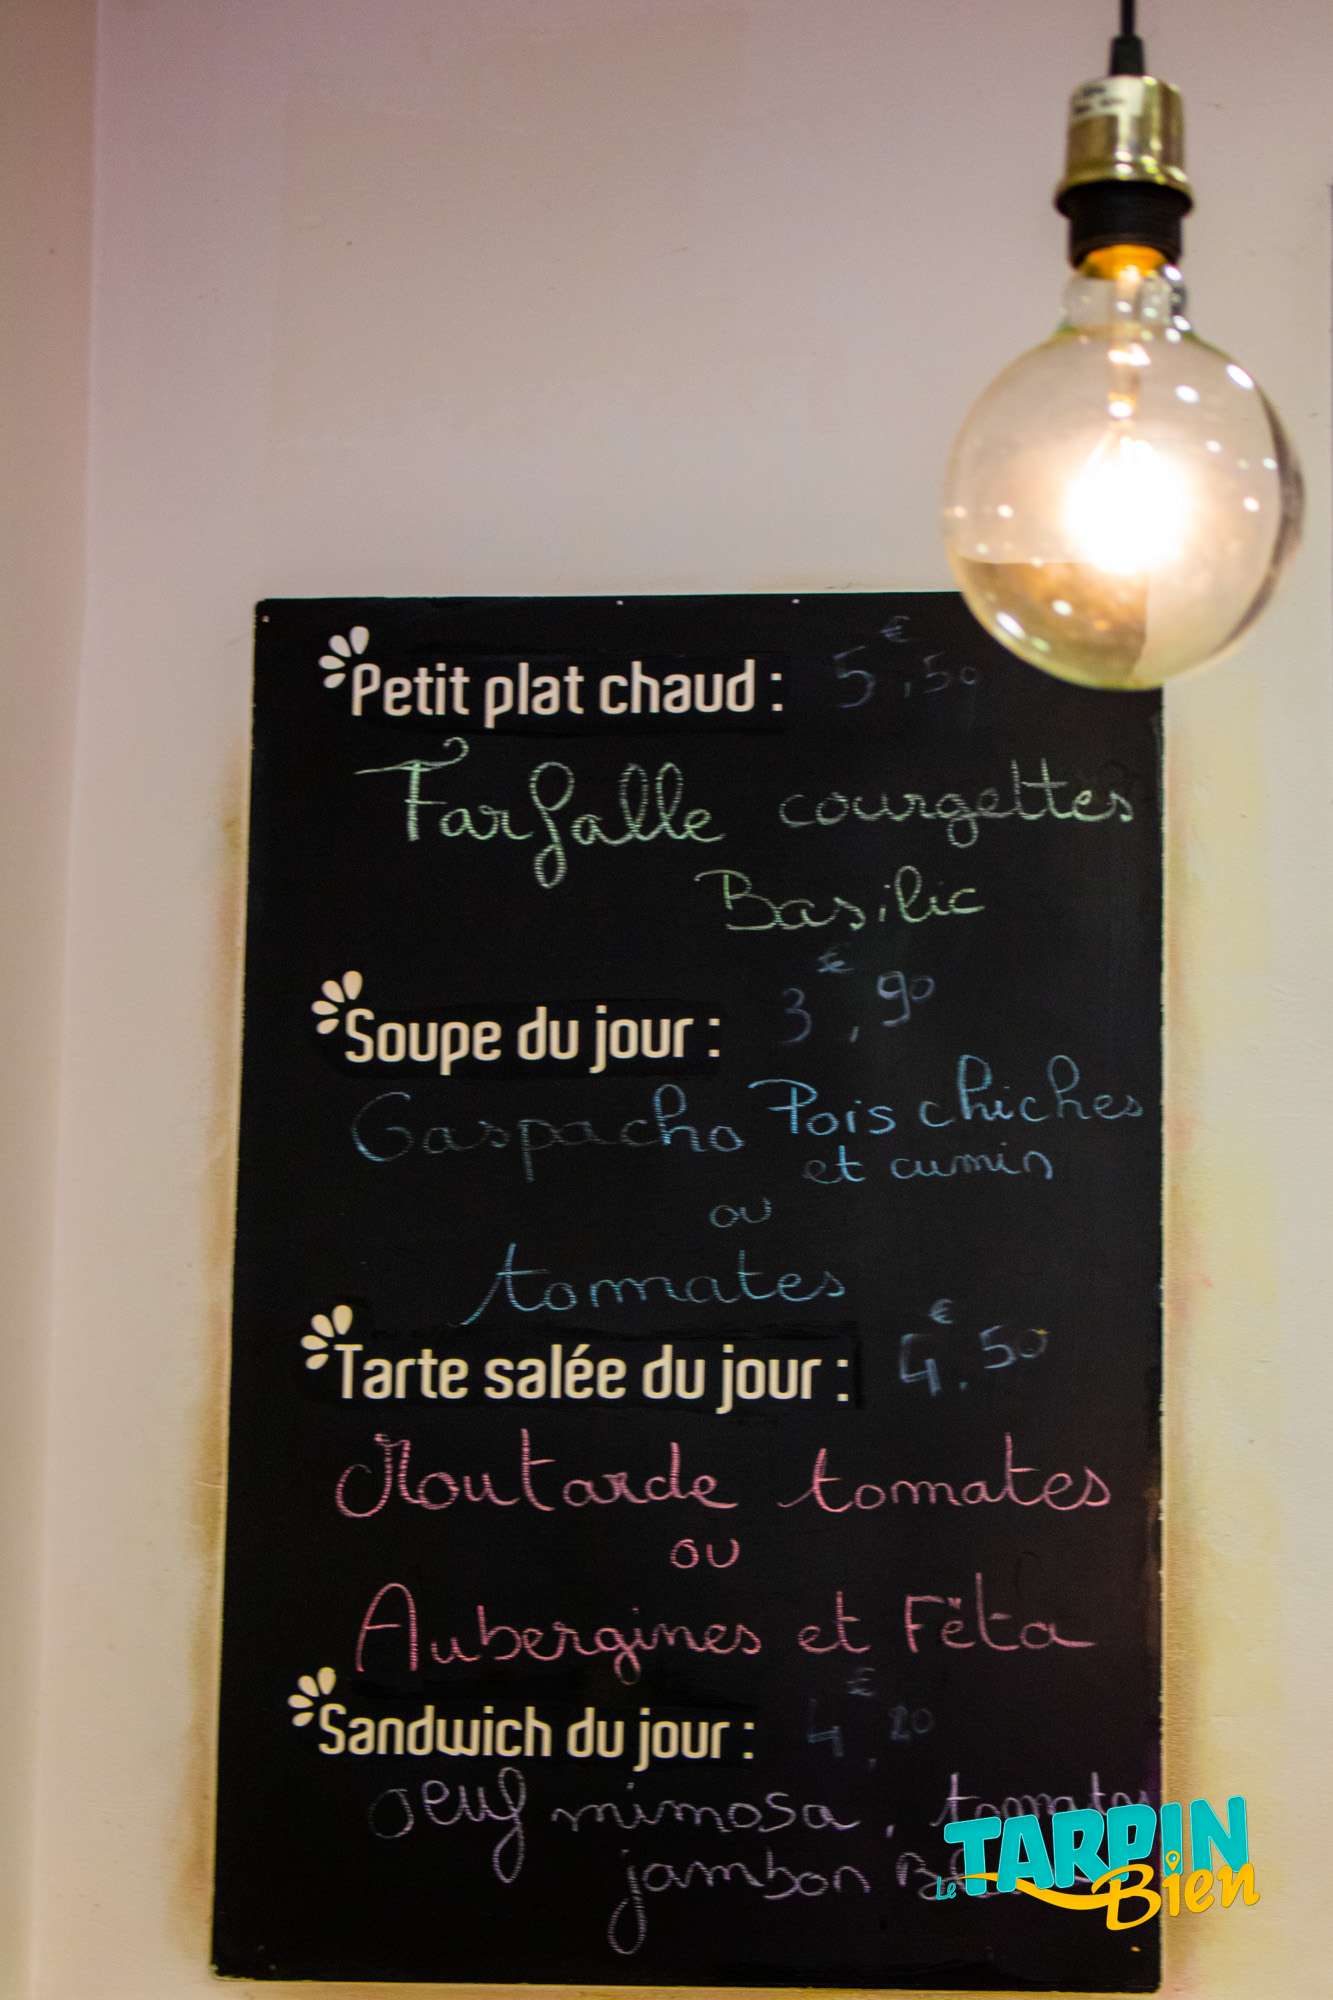 Petit plat chaud : 5€,50
Farfalle courgettes
Basilic
Soupe du jour : 3€,90
Gaspacho Pois chiches
et cumin
ou
tomates
Tarte salée du jour : 4€.50
Moutarde tomates
ou
Aubergines et Fëta
Sandwich du jour : 4€,20
oeuf mimosa, tomates
jambon
Le TARPIN
Bien